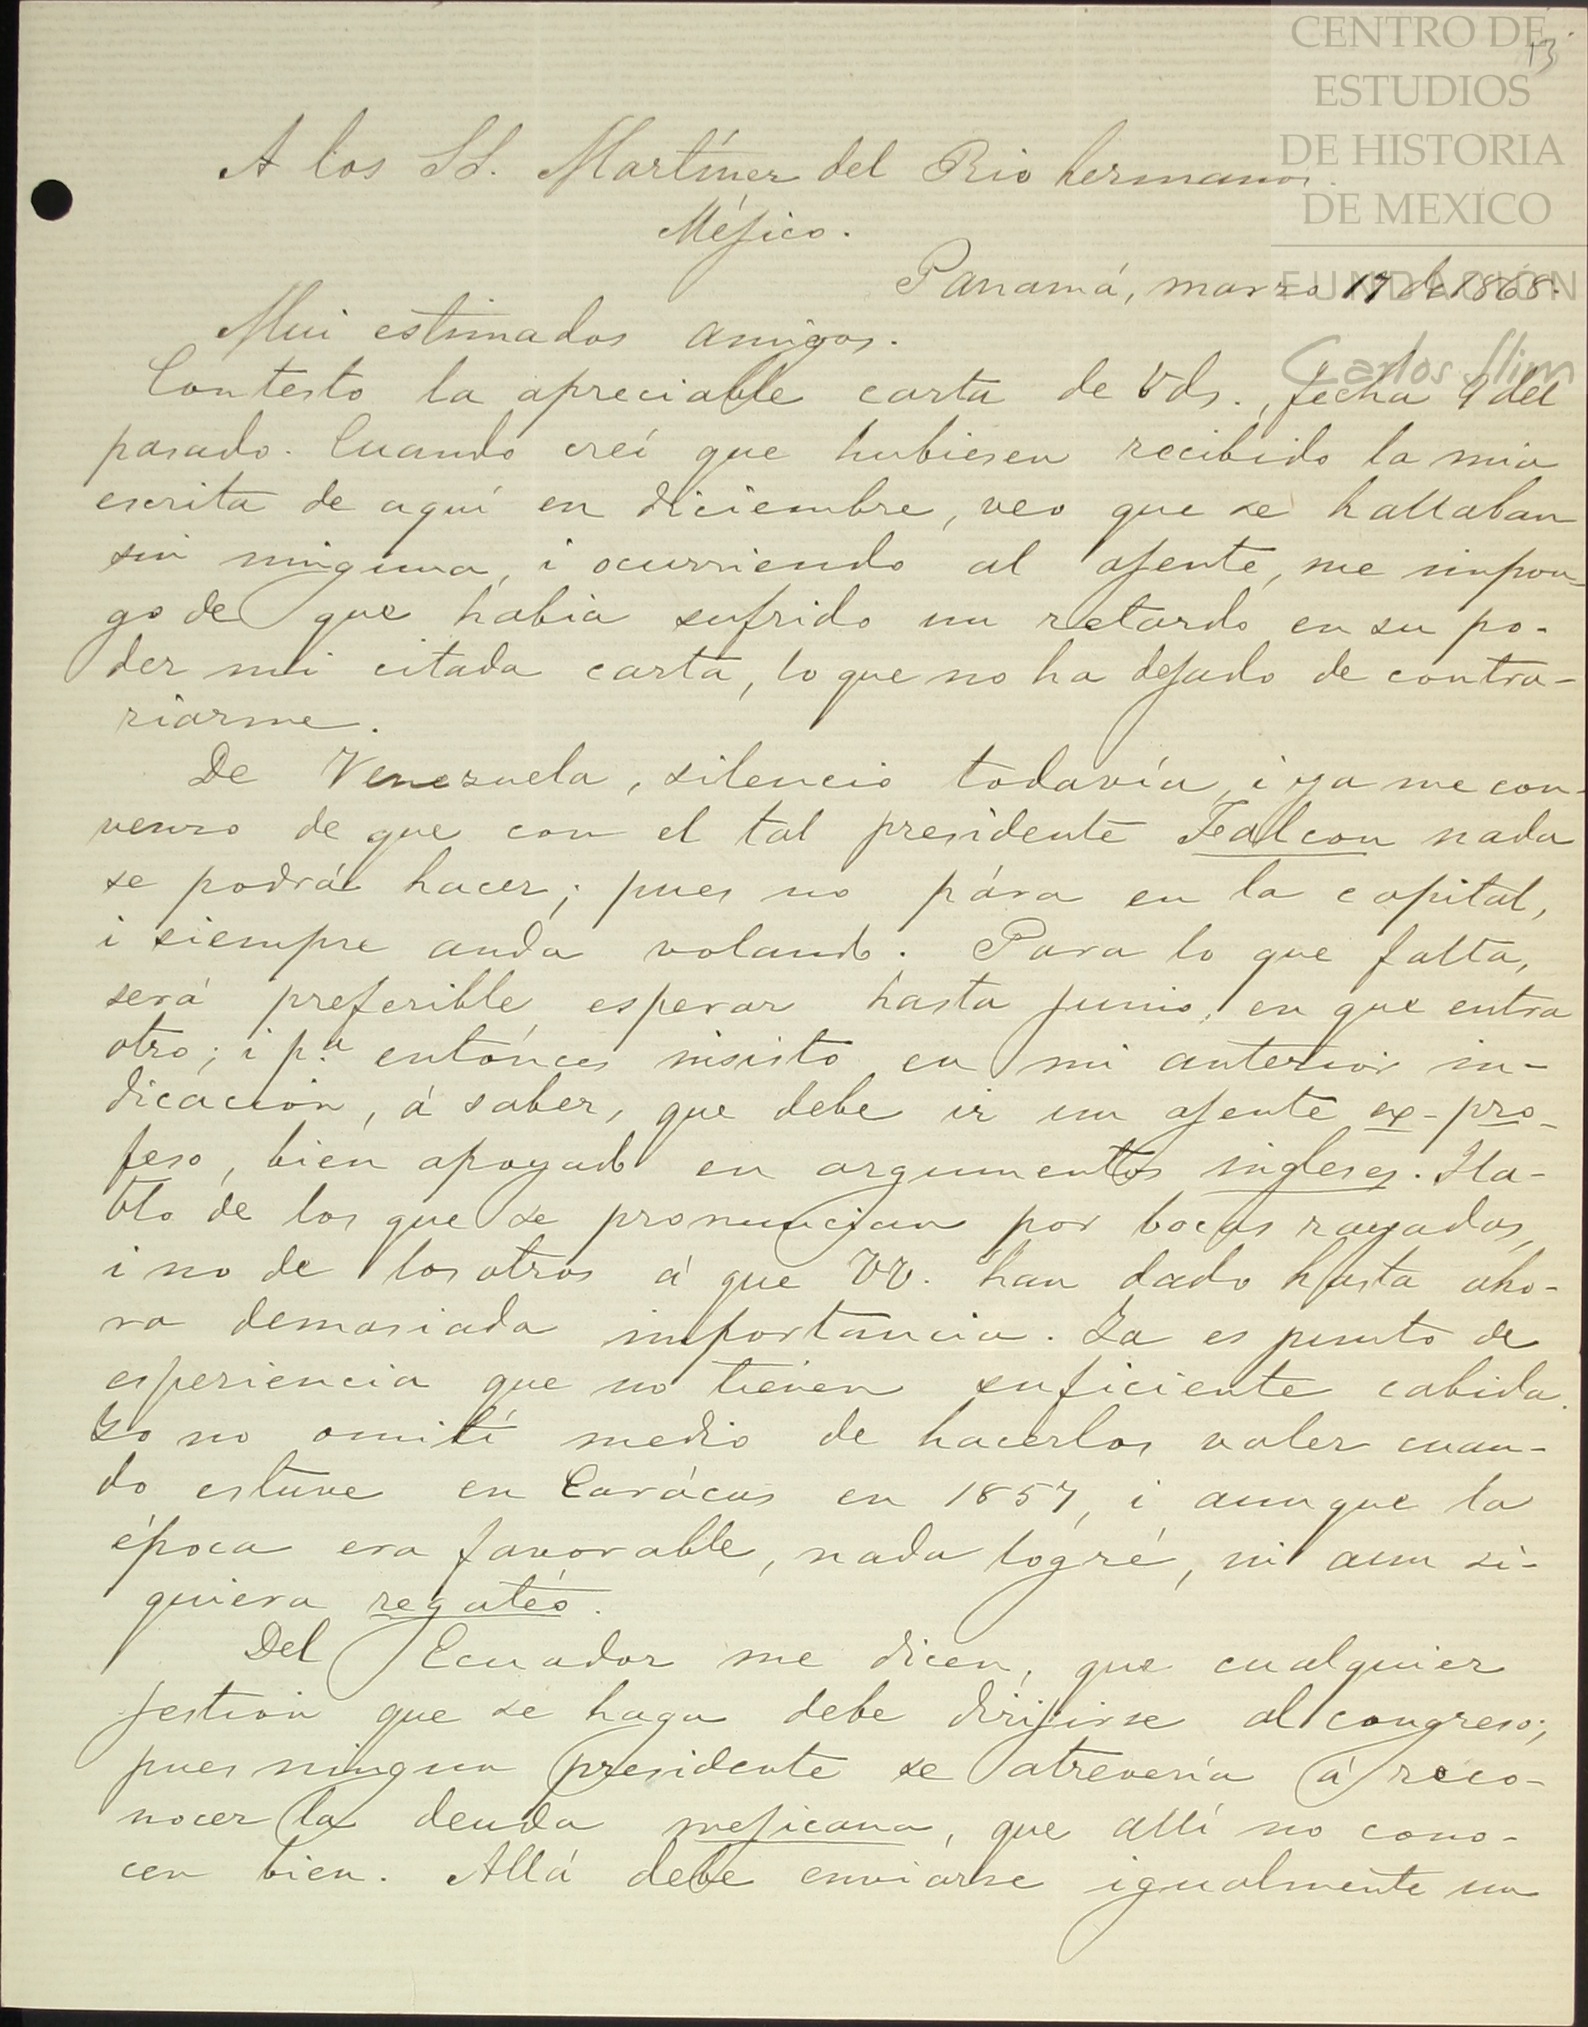 CENTRO DE
ESTUDIOS
DE HISTORIA
DE MEXICO
FUNDACIÓN
Carlos Slim
13
A los SS. Martínez del Rio hermanos.
Méjico.
Panamá, marzo 17 de 1868.
Mui estimados amigos.
Contesto la apreciable carta de Vds., fecha 9 del
pasado. Cuando creí que hubiesen recibido la mia
escrita de aquí en diciembre, veo que se hallaban
sin ninguna, i ocurriendo al ajente, me impon-
go de que habia sufrido un retardo en su po-
der mi citada carta, lo que no ha dejado de contra-
riarme.
De Venezuela, silencio todavía, i ya me con-
venzo de que con el tal presidente Falcon nada
se podrá hacer; pues no pára en la capital,
i siempre anda volando. Para lo que falta,
será preferible esperar hasta junio, en que entra
otro; i p.a entónces insisto en mi anterior in-
dicación, á saber, que debe ir un ajente ex-pro-
feso, bien apoyado en argumentos ingleses. Ha-
blo de los que se pronuncian por bocas rayadas,
i no de los otros á que VV. han dado hasta aho-
ra demasiada importancia. Ya es punto de
esperiencia que no tienen suficiente cabida.
Yo no omití medio de hacerlos valer cuan-
do estuve en Carácas en 1857, i aunque la
época era favorable, nada logré, ni aun si-
quiera regatéo.
Del Ecuador me dicen, que cualquier
jestion que se haga debe dirijirse al congreso;
pues ningun presidente se atrevería á reco-
nocer la deuda mejicana, que allí no cono-
cen bien. Allá debe enviarse igualmente un